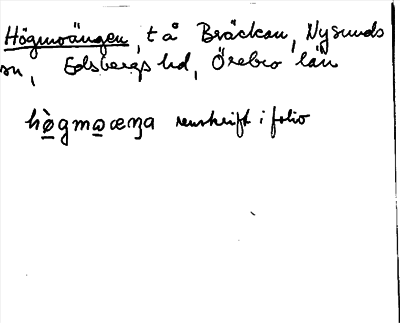 Högmoängen, t å Bräckan, Nysunds
sn, Edsbergs hd, Örebro län
hø̀gmωæŋa renskrift i folio